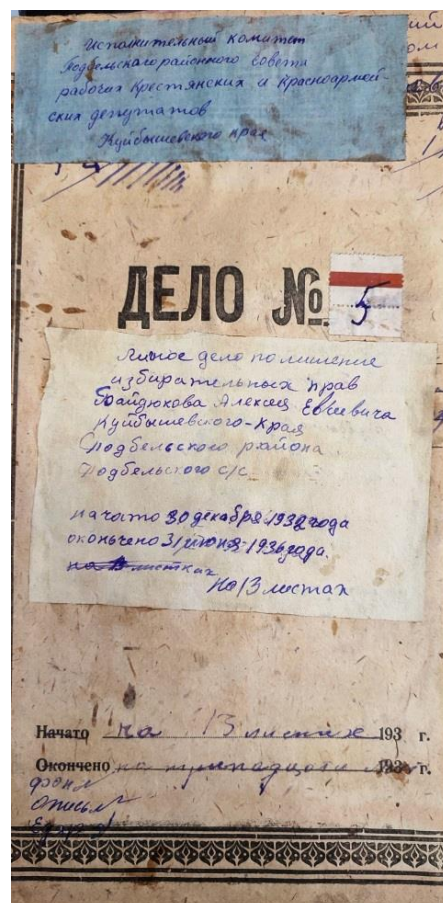 Исполнительный комитет
Подбельского районного совета
рабочих крестянских и красноармей-
ских депутатов
Куйбышевского края
ДЕЛО №
5
Личное дело по лишение
избирательных прав
Байдюкова Алексея Евсеевича
Куйбышевского-Края
Подбельского района
Подбельского с/с
начато 30 декабря 1932 года
оконьчено 31 июня 1936 года.
на 13 листах
Начато на 13 листах 193 г.
Окончено на тринадцати 193 г.
фонд
опись
Ед. хр.